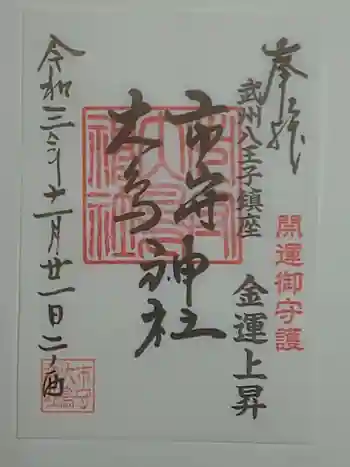 奉拝
武州八王子鎮座
開運御守護
金運上昇
市守神社
大鳥神社
令和三年十一月廿一日二ノ酉